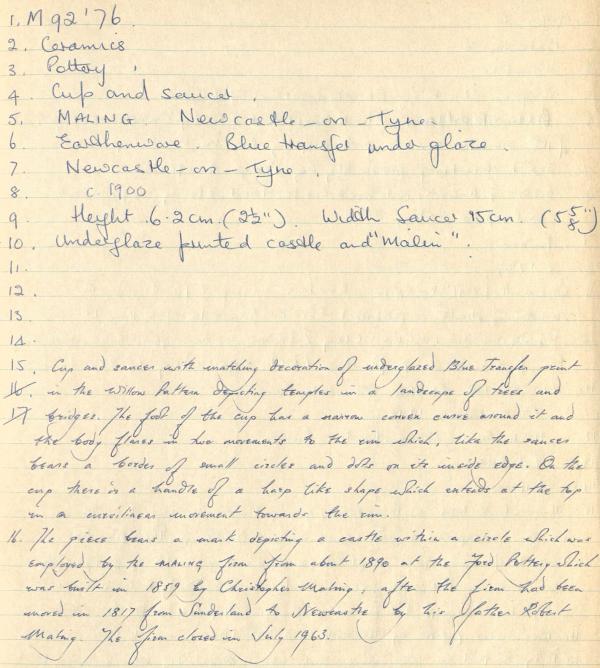 1. M 92 '76.
2. Ceramics
3. Pottery.
4. Cup and saucer.
5. MALING Newcastle-on-Tyne.
6. Earthenware. Blue transfer underglaze.
7. Newcastle-on-Tyne.
8. c. 1900
9. Height 6.2 cm. (2½"). Width Saucer 15cm. (5⅝")
10. Underglaze printed castle and "Malin".
11.
12.
13.
14.
15. Cup and saucer with matching decoration of underglazed Blue Transfer print
16. in the Willow Pattern depicting temples in a landscape of trees and
17. bridges. The foot of the cup has a narrow convex curve around it and
the body flares in two movements to the rim which, like the saucer
bears a border of small circles and dots on its inside edge. On the
cup there is a handle of a harp like shape which extends at the top
in a curvilinear movement towards the rim.
16. The piece bears a mark depicting a castle within a circle which was
employed by the MALING firm from about 1890 at the Ford Pottery which
was built in 1859 by Christopher Maling, after the firm had been
moved in 1817 from Sunderland to Newcastle by his father Robert
Maling. The firm closed in July 1963.